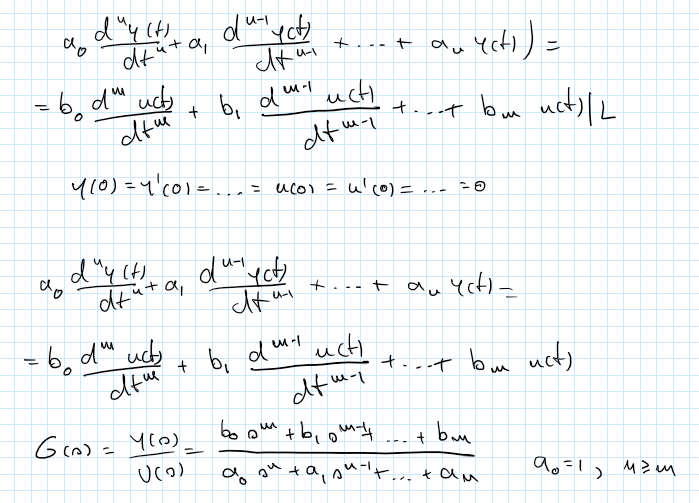 a₀ dⁿy(t)/dtⁿ + a₁ dⁿ⁻¹y(t)/dtⁿ⁻¹ + ... + aₙ y(t) ) =
= b₀ dᵐ u(t)/dtᵐ + b₁ dᵐ⁻¹ u(t)/dtᵐ⁻¹ + ... + bₘ u(t) | L
y(0) = y'(0) = .... = u(0) = u'(0) = .... = 0
a₀ dⁿy(t)/dtⁿ + a₁ dⁿ⁻¹y(t)/dtⁿ⁻¹ + ... + aₙ y(t) =
= b₀ dᵐ u(t)/dtᵐ + b₁ dᵐ⁻¹ u(t)/dtᵐ⁻¹ + ... + bₘ u(t)
G(s) = Y(s)/U(s) = (b₀ sᵐ + b₁ sᵐ⁻¹ + ... + bₘ)/(a₀ sⁿ + a₁ sⁿ⁻¹ + ... + aₙ) a₀ = 1, n ≥ m